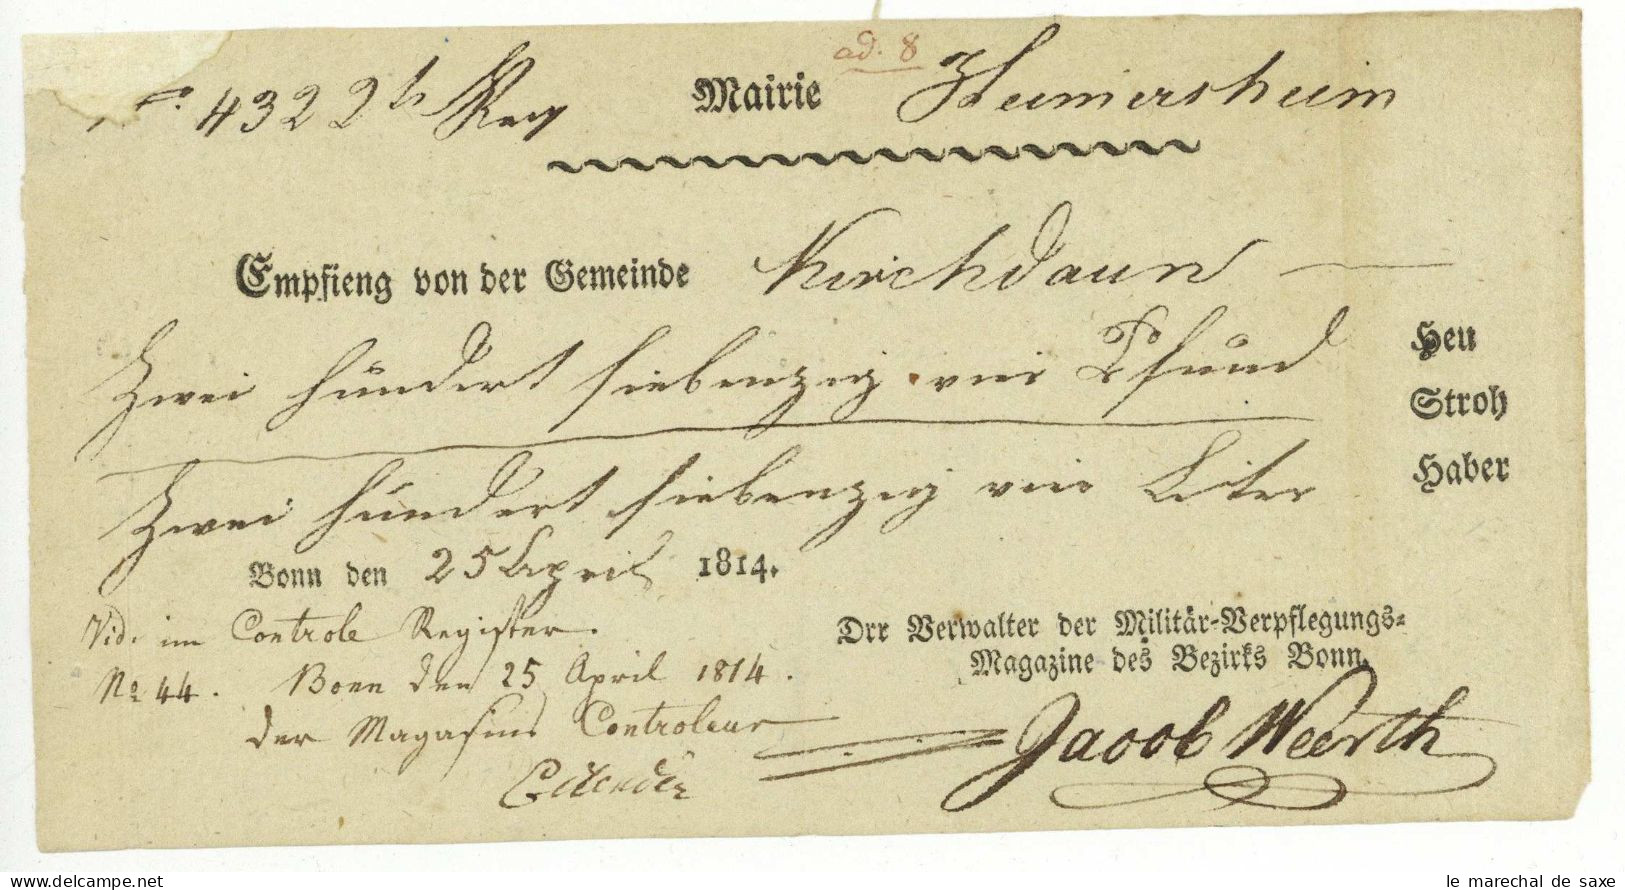 ad. 8
4322 th Reg
Mairie Heimersheim
Empfieng von der Gemeinde Kirchdaun
Heu
Zwei hundert siebenzig vier Pfund
Stroh
Zwei hundert siebenzig vier Liter
Haber
Bonn den 25 April 1814.
Vid. im Controle Register.
No 44. Bonn den 25 April 1814.
der Magasins Controleur
Drr Verwalter der Militär-Verpflegungs-
Magazine des Bezirks Bonn.
Jacob Weerth
le marechal de saxe